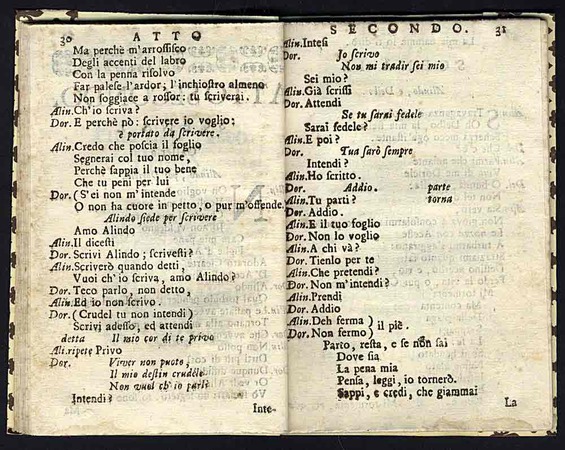 30 ATTO
Ma perchè m'arrossisco
Degli accenti del labro
Con la penna risolvo
Far palese l'ardor; l'inchiostro almeno
Non soggiace a rossor: tu scriverai.
Alin. Ch'io scriva?
Dor. E perchè nò: scrivere io voglio;
è portato da scrivere.
Alin. Credo che poscia il foglio
Segnerai col tuo nome,
Perchè sappia il tuo bene
Che tu peni per lui
Dor. (S'ei non m'intende
O non ha cuore in petto, o pur m'offende.
Alindo siede per scrivere
Amo Alindo
Alin. Il dicesti
Dor. Scrivi Alindo; scrivesti?
Alin. Scriverò quando detti,
Vuoi ch'io scriva, amo Alindo?
Dor. Teco parlo, non detto,
Alin. Ed io non scrivo.
Dor. (Crudel tu non intendi)
Scrivi adesso, ed attendi
detta Il mio cor di te privo
Ali. ripete Privo
Dor. Viver non puote,
Il mio destin crudele
Non vuol ch'io parli
Intendi?
Inte-
SECONDO. 31
Alin. Intesi
Dor. Io scrivo
Non mi tradir sei mio
Sei mio?
Alin. Già scrissi
Dor. Attendi
Se tu sarai fedele
Sarai fedele?
Alin. E poi?
Dor. Tua sarò sempre
Intendi?
Alin. Ho scritto.
Dor. Addio. parte
Alin. Tu parti? torna
Dor. Addio.
Alin. E il tuo foglio
Dor. Non lo voglio
Alin. A chi và?
Dor. Tienlo per te
Alin. Che pretendi?
Dor. Non m'intendi?
Alin. Prendi
Dor. Addio
Alin. Deh ferma)
Dor. Non fermo) il piè.
Parto, resta, e se non sai
Dove sia
La pena mia
Pensa, leggi, io tornerò.
Sappi, e credi, che giammai
La